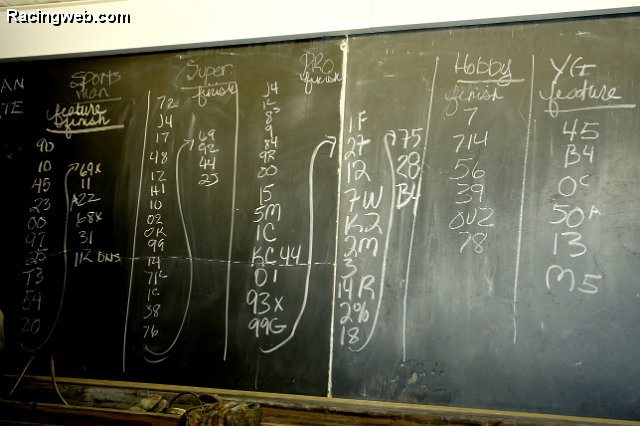 Racingweb.com
AN
TE
Sportsman
feature
finish
90
10
45
23
00
97
T3
54
20
69x
11
A22
6-8x
31
1K DNS
Super
finish
72
J4
17
48
12
H1
10
02
OR
99
14
71C
1C
38
76
69
92
44
23
PRO
finish
J4
8
9
84
9R
00
15
5M
1C
KC 44
01
93x
99G
1F
27
12
7W
K2
2M
3
19R
2%
18
75
28
B4
Hobby
finish
7
714
56
39
OUZ
78
YG
feature
45
B4
0C
50A
13
M5